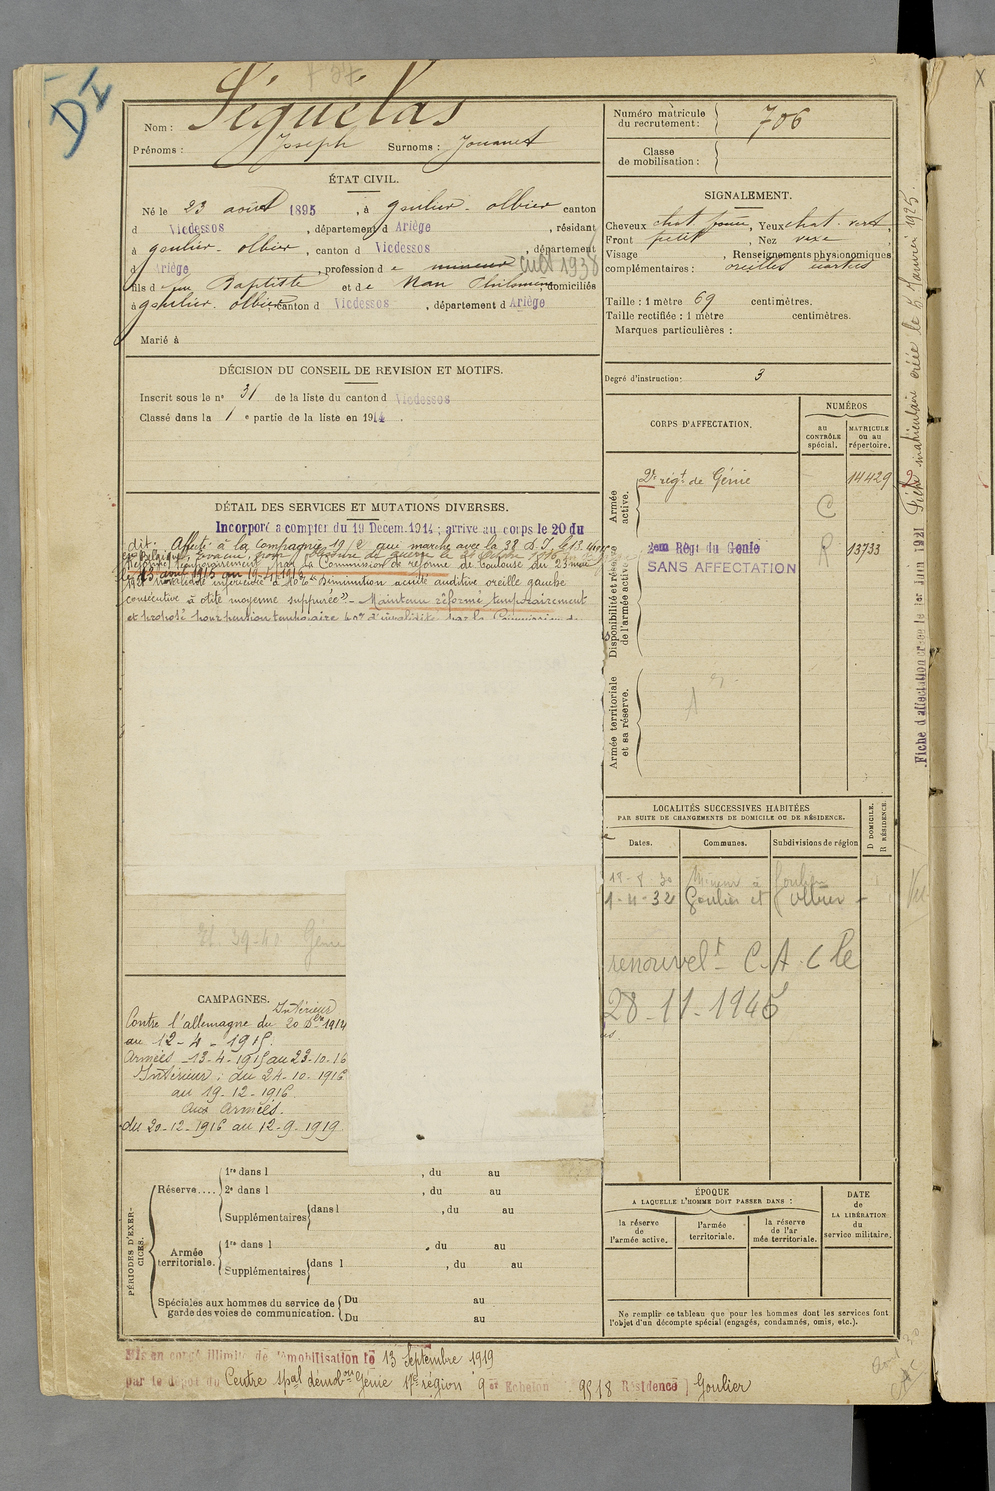 DI
Nom : Séguélas
Prénoms : Joseph Surnoms : Jouanet
ÉTAT CIVIL.
Né le 23 août 1895, à goulier-olbier canton
d Vicdessos, département d Ariège, résidant
à goulier-olbier, canton d Vicdessos, département
d Ariège, profession de mineur cult 1938
fils de feu Baptiste et de Nau Philomène, domiciliés
à goulier-olbier, canton d Vicdessos, département d Ariège
Marié à
DÉCISION DU CONSEIL DE REVISION ET MOTIFS.
Inscrit sous le nº 31 de la liste du canton d Vicdessos
Classé dans la 1e partie de la liste en 1914.
DÉTAIL DES SERVICES ET MUTATIONS DIVERSES.
Incorporé a compter du 19 Décem. 1914 ; arrivé au corps le 20 du
dit. Affecté à la Compagnie 19/2 qui marche avec la 38 D.I. le 13
Réformé temporairement par la Commission de réforme de Toulouse du 23 mai
invalidité inférieure à 10% "Diminution acuité auditive oreille gauche
consécutive à otite moyenne suppurée" - Maintenu réformé temporairement
et proposé pour pension temporaire d'invalidité par la Commission de
Et. 39-40 Génie
CAMPAGNES.
Intérieur
Contre l'allemagne du 20 Dbre 1914
au 12-4-1915.
Armées 13-4-1915 au 23-10-16
Intérieur : du 24-10-1916
au 19-12-1916.
aux Armées.
du 20-12-1916 au 12-9-1919
PÉRIODES D'EXERCICES.
Réserve....
1re dans l , du au
2e dans l , du au
Supplémentaires dans l , du au
Armée territoriale.
1re dans l , du au
Supplémentaires dans l , du au
Spéciales aux hommes du service de garde des voies de communication.
Du au
Du au
Mis en congé illimité de démobilisation le 13 Septembre 1919
par le dépôt du Centre spal démobon Génie 17e région 9er Echelon 9518 Résidence ) Goulier
Numéro matricule du recrutement : 706
Classe de mobilisation :
SIGNALEMENT.
Cheveux chat foncé, Yeux chat. vert,
Front petit, Nez vexe
Visage , Renseignements physionomiques
complémentaires : oreilles écartées
Taille : 1 mètre 69 centimètres.
Taille rectifiée : 1 mètre centimètres.
Marques particulières :
Degré d'instruction: 3
CORPS D'AFFECTATION.
NUMÉROS
au CONTRÔLE spécial.
MATRICULE ou au répertoire.
Armée active.
2e régt de Génie 14429
C
Disponibilité et réserve de l'armée active.
2em Régt du Génie R 13733
SANS AFFECTATION
Armée territoriale et sa réserve.
LOCALITÉS SUCCESSIVES HABITÉES
PAR SUITE DE CHANGEMENTS DE DOMICILE OU DE RÉSIDENCE.
Dates. Communes. Subdivisions de région
D DOMICILE.
R RÉSIDENCE.
18-8-30 Mineur à Goulier
1-4-32 Goulier et Olbier
renouvelt C.A.C le
28-11-1945
ÉPOQUE
A LAQUELLE L'HOMME DOIT PASSER DANS :
la réserve de l'armée active.
l'armée territoriale.
la réserve de l'ar mée territoriale.
DATE de LA LIBÉRATION du service militaire.
Ne remplir ce tableau que pour les hommes dont les services font
l'objet d'un décompte spécial (engagés, condamnés, omis, etc.).
Fiche d'affectation créée le 1er Juin 1921
Fiche matriculaire créée le 8 Janvier 1925.
X